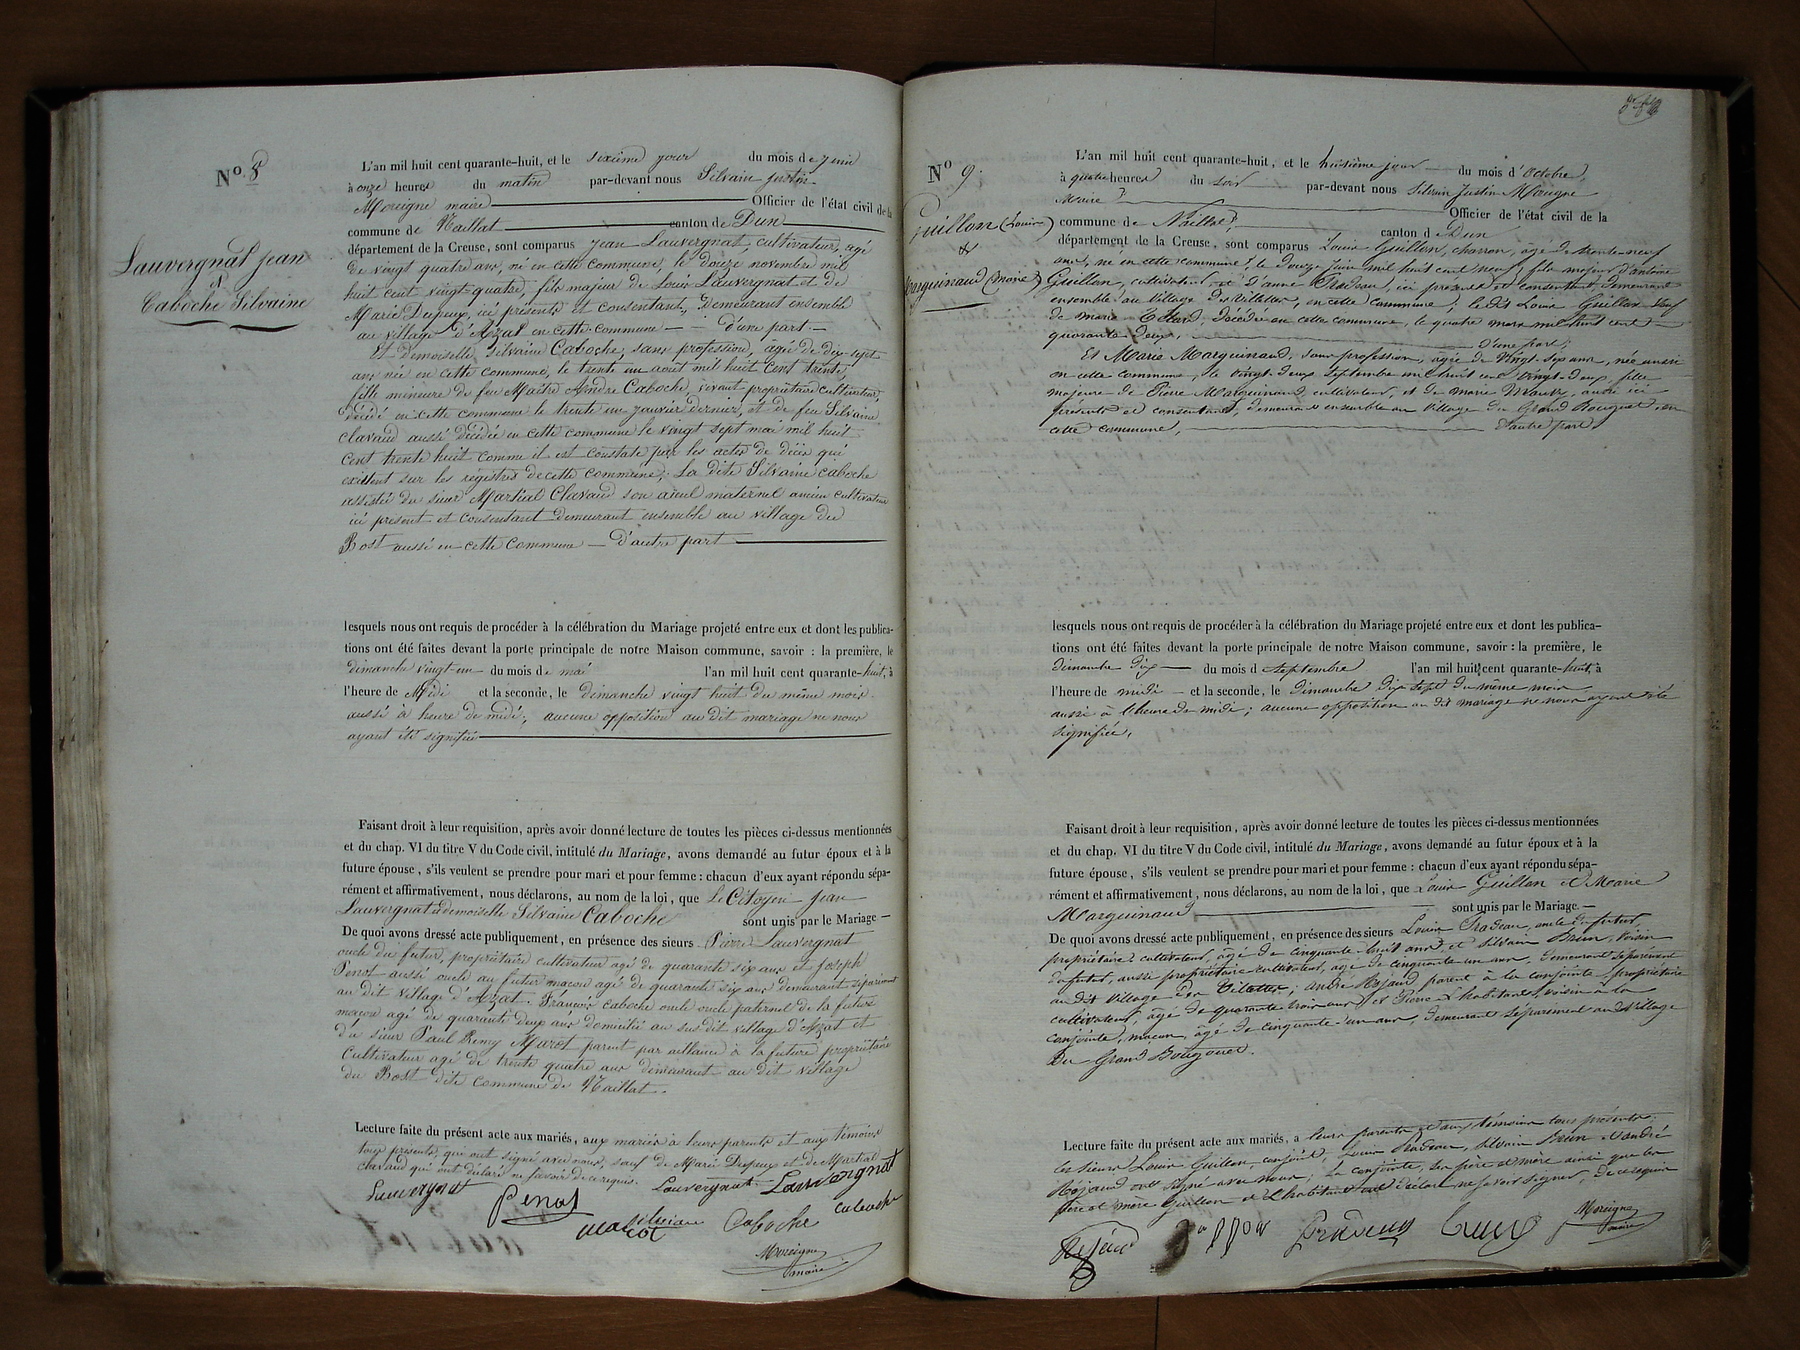 N° 8
Lauvergnat Jean
&
Caboche Silvaine
L'an mil huit cent quarante-huit, et le sixième jour du mois de juin
à onze heures du matin par-devant nous Silvain Justin
Moreigne maire Officier de l'état civil de la
commune de Naillat canton de Dun
département de la Creuse, sont comparus Jean Lauvergnat, cultivateur, agé
de vingt quatre ans, né en cette commune, le douze novembre mil
huit cent vingt-quatre, fils majeur de Louis Lauvergnat et de
Marie Dupeux, ici présents et consentants, demeurant ensemble
au village d'Azat en cette commune — d'une part —
Et Demoiselle Silvaine Caboche, sans profession, âgée de dix-sept
ans née en cette commune, le trente un août mil huit cent trente,
fille mineure de feu Maître André Caboche, vivant propriétaire cultivateur,
décédé en cette commune le trente un janvier dernier, et de feu Silvaine
Clavaud aussi décédée en cette commune le vingt sept mai mil huit
cent trente huit comme il est constaté par les actes de décès qui
existent sur les régistres de cette commune; La dite Silvaine Caboche
assistée du sieur Martial Clavaud son aieul maternel ancien cultivateur
ici présent et consentant demeurant ensemble au village du
Bost aussi en cette commune — d'autre part
lesquels nous ont requis de procéder à la célébration du Mariage projeté entre eux et dont les publica-
tions ont été faites devant la porte principale de notre Maison commune, savoir : la première, le
dimanche vingt-un du mois de mai l'an mil huit cent quarante-huit, à
l'heure de Midi et la seconde, le dimanche vingt huit du même mois
aussi à heure de midi; aucune opposition au dit mariage ne nous
ayant été signifiée
Faisant droit à leur requisition, après avoir donné lecture de toutes les pièces ci-dessus mentionnées
et du chap. VI du titre V du Code civil, intitulé du Mariage, avons demandé au futur époux et à la
future épouse, s'ils veulent se prendre pour mari et pour femme : chacun d'eux ayant répondu sépa-
rément et affirmativement, nous déclarons, au nom de la loi, que Le Citoyen Jean
Lauvergnat et demoiselle Silvaine Caboche sont unis par le Mariage —
De quoi avons dressé acte publiquement, en présence des sieurs Pierre Lauvergnat
oncle du futur, propriétaire cultivateur agé de quarante six ans et Joseph
Penot aussi oncle au futur maçon agé de quarante six ans demeurant séparément
au dit village d'Azat. François Caboche oncle paternel de la future
maçon agé de quarante deux ans domicilié au sus dit village d'Azat et
du sieur Paul Remy Marcot parent par alliance à la future propriétaire
cultivateur agé de trente quatre ans demeurant au dit village
du Bost dite commune de Naillat.
Lecture faite du présent acte aux mariés, aux mariés à leurs parents et aux témoins
tous présents, qui ont signé avec nous, sauf de Marie Dupeux et de Martial
Clavaud qui ont déclaré ne savoir de ce requis.
Lauvergnat Penot Lauvergnat Lauvergnat
Marcot Silvaine Caboche Caboche
Moreigne
maire
N° 9.
Guillon (Louis)
&
Marguinaud (Marie)
L'an mil huit cent quarante-huit, et le huitième jour du mois d'Octobre,
à quatre heures du soir par-devant nous Silvain Justin Moreigne
Maire Officier de l'état civil de la
commune de Naillat, canton de Dun
département de la Creuse, sont comparus Louis Guillon, charron, agé de trente-neuf
ans, né en cette commune, le douze Juin mil huit cent neuf, fils majeur d'antoine
Guillon, cultivateur, et d'anne Pradeau, ici présents et consentant, demeurant
ensemble au village des Vilattes, en cette commune; le dit Louis Guillon veuf
de marie, décédée en cette commune, le quatre mars mil huit cent
quarante deux, d'une part;
Et Marie Marguinaud, sans profession, agée de vingt-six ans, née aussi
en cette commune, le vingt-deux septembre mil huit cent vingt-deux, fille
majeure de Pierre Marguinaud cultivateur, et de marie, aussi ici
présents et consentant, demeurant ensemble au village du Grand Bougouet, en
cette commune, d'autre part,
lesquels nous ont requis de procéder à la célébration du Mariage projeté entre eux et dont les publica-
tions ont été faites devant la porte principale de notre Maison commune, savoir : la première, le
dimanche dix du mois de septembre l'an mil huit cent quarante-huit, à
l'heure de midi et la seconde, le dimanche dix sept du même mois
aussi à l'heure de midi; aucune opposition au dit mariage ne nous ayant été
signifiée,
Faisant droit à leur requisition, après avoir donné lecture de toutes les pièces ci-dessus mentionnées
et du chap. VI du titre V du Code civil, intitulé du Mariage, avons demandé au futur époux et à la
future épouse, s'ils veulent se prendre pour mari et pour femme : chacun d'eux ayant répondu sépa-
rément et affirmativement, nous déclarons, au nom de la loi, que Louis Guillon et Marie
Marguinaud sont unis par le Mariage —
De quoi avons dressé acte publiquement, en présence des sieurs Louis Pradeau, oncle du futur,
propriétaire cultivateur, agé de cinquante-huit ans, et Silvain Brun, voisin
du futur, aussi propriétaire cultivateur, agé de cinquante un ans, demeurant séparément
au dit village des Vilattes; André Rojaud parent à la conjointe, propriétaire
cultivateur, âgé de quarante trois ans, et Pierre Lhabitant, voisin à la
conjointe, maçon, âgé de cinquante-un ans, demeurant séparément au dit village
du Grand Bougouet.
Lecture faite du présent acte aux mariés, a leurs parents et aux témoins tous présents,
les sieurs Louis Guillon, conjoint, Louis Pradeau, Silvain Brun et andré
Rojaud ont signé avec nous; la conjointe, ses père et mère ainsi que les
père et mère Guillon et Lhabitant ont déclaré ne savoir signer, de ce requis
Rojaud Pradeau Brun Moreigne
maire